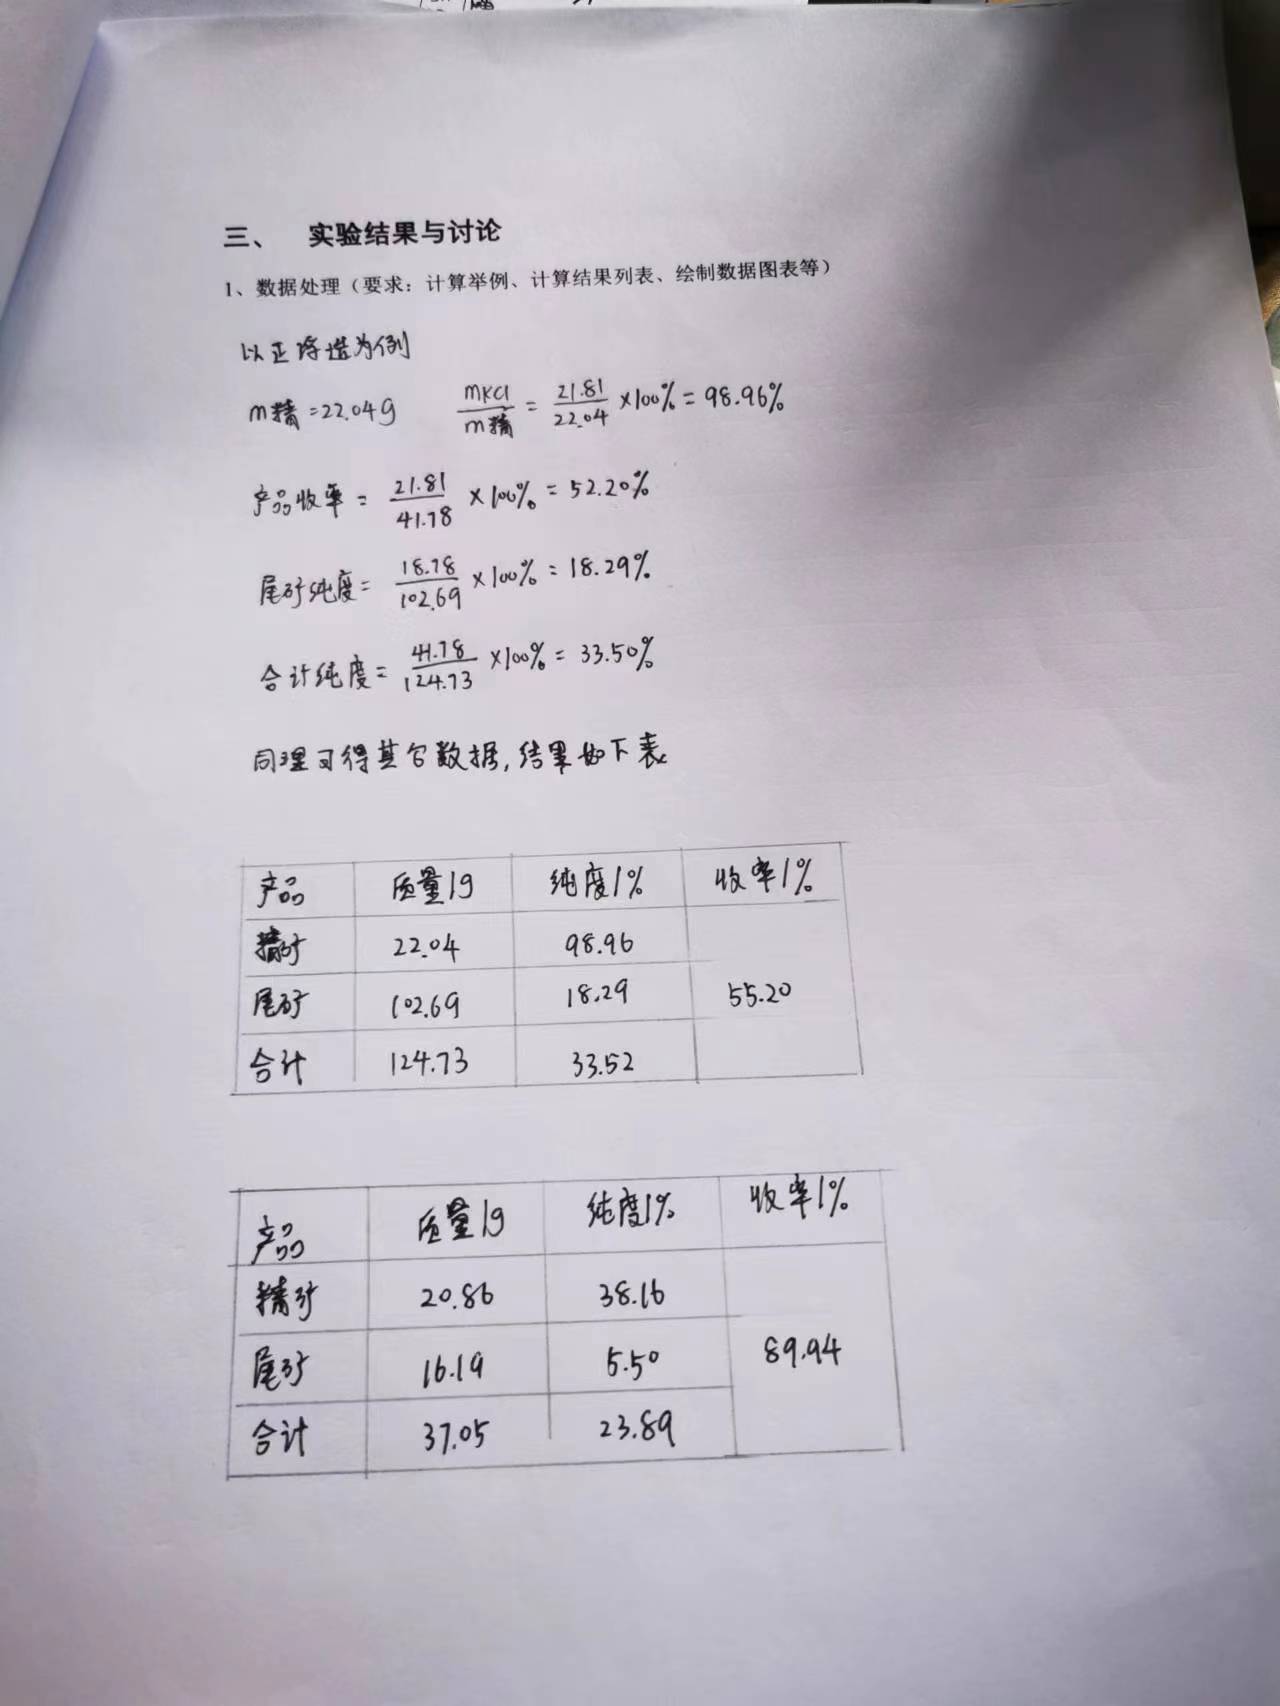 三、 实验结果与讨论
1、数据处理（要求：计算举例、计算结果列表、绘制数据图表等）
以正浮选为例
m精=22.04g mKCl/m精 = 21.81/22.04 ×100% = 98.96%
产品收率 = 21.81/41.78 ×100% = 52.20%
尾矿纯度 = 18.78/102.69 ×100% = 18.29%
合计纯度 = 41.78/124.73 ×100% = 33.50%
同理可得其它数据,结果如下表
产品 质量/g 纯度/% 收率/%
精矿 22.04 98.96
尾矿 102.69 18.29 55.20
合计 124.73 33.52
产品 质量/g 纯度/% 收率/%
精矿 20.86 38.16
尾矿 16.19 5.50 89.94
合计 37.05 23.89